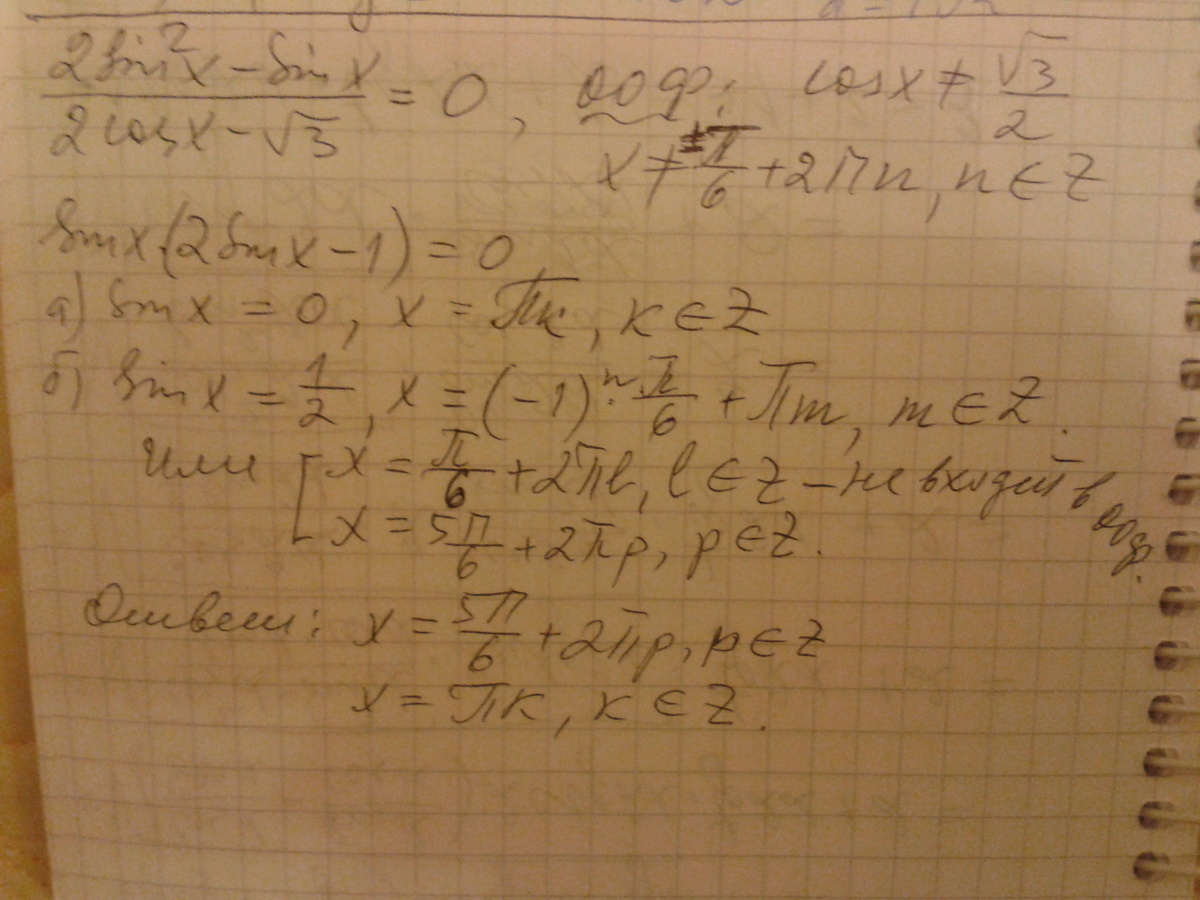 (2sin²x − sin x)/(2cosx − √3) = 0, ООФ: cosx ≠ √3/2
x ≠ ±π/6 + 2πn, n ∈ Z
sinx·(2sinx − 1) = 0
а) sinx = 0, x = πк, к ∈ Z
б) sinx = 1/2, x = (−1)ⁿ · π/6 + πm, m ∈ Z.
или [ x = π/6 + 2πl, l ∈ Z – не входит в ООФ.
x = 5π/6 + 2πp, p ∈ Z.
Ответ: x = 5π/6 + 2πp, p ∈ Z
x = πк, к ∈ Z.